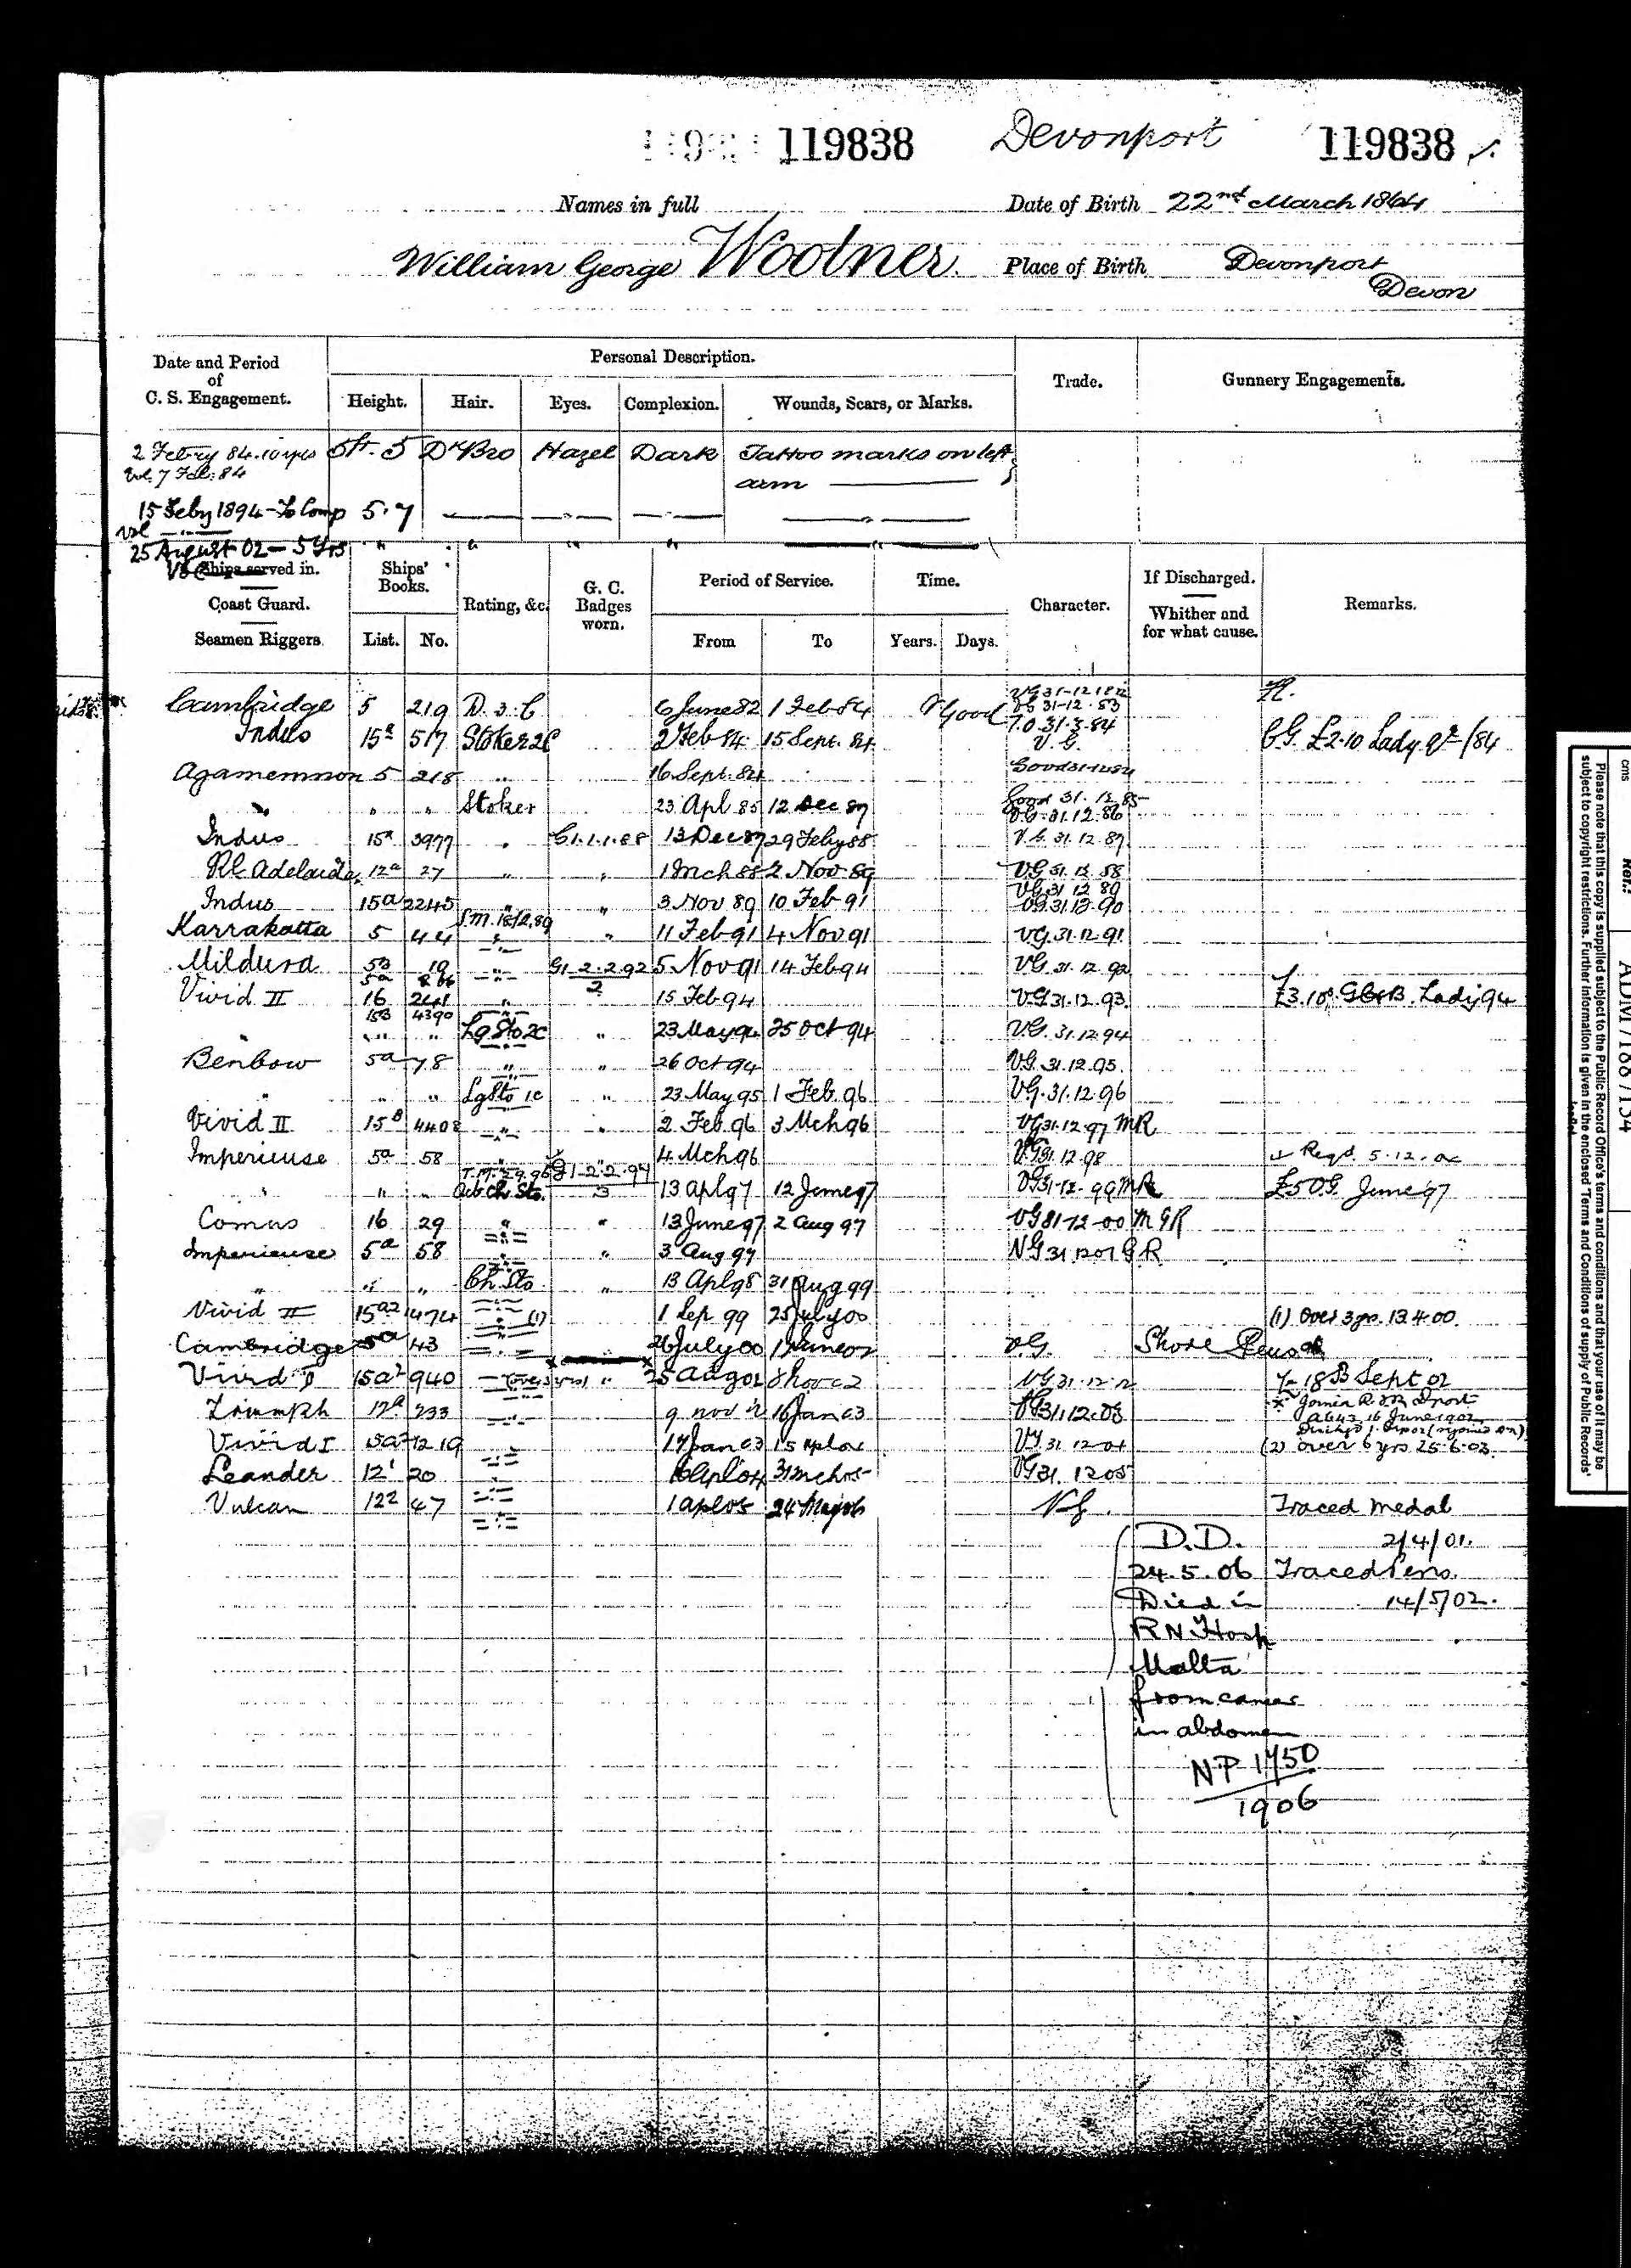 119838 Devonport 119838
Names in full Date of Birth 22nd March 1864
William George Woolner. Place of Birth Devonport
Devon
Date and Period of C. S. Engagement. Personal Description. Trade. Gunnery Engagements.
Height. Hair. Eyes. Complexion. Wounds, Scars, or Marks.
2 84. 10 yrs 5ft. 5 Dk Bro Hazel Dark Tattoo marks on left
Vol. 7 Feb: 84 arm
15 Feby 1894 - To Comp 5.7
Vol
25 August 02 - 5 Yrs " " " " "
Ships served in. Ships' Books. Rating, &c. G. C. Badges worn. Period of Service. Time. Character. If Discharged. Remarks.
Coast Guard. Whither and for what cause.
Seamen Riggers. List. No. From To Years. Days.
VG 31-12 1882
Cambridge 5 219 D. 3. C 6 June 82 1 Feb 84 Good 31-12.83
T.O 31.3.84
Indus 15a 517 Stoker 2C 2 Feb 84 15 Sept. 84 V.G. £2.10 Lady /84
Agamemnon 5 218 " 16 Sept. 84 Good
" " " Stoker 23 Apl 85 12 Dec 87 Good 31.12.85
VG.31.12.86
Indus 15a 3977 " G1.1.1.88 13 Dec 87 29 Feby 88 V.G. 31.12.87
Rl Adelaide 12a 27 " " 1 Mch 88 2 Nov 89 VG 31.12.88
VG 31 12 89
Indus 15a 2245 " " 3 Nov 89 10 Feb 91 VG.31.12.90
Karrakatta 5 44 " " 11 Feb 91 4 Nov 91 VG.31.12.91
Mildura 5B 19 " G1.2.2.92 5 Nov 91 14 Feb 94 VG 31.12.92
5a 2
Vivid II 16 241 " 15 Feb 94 VG 31.12.93. £3.10 Lady 94
15B 4390
" " " Lg Sto 2C " 23 May 94 25 Oct 94 VG. 31.12.94
Benbow 5a 78 " " 26 Oct 94 VG.31.12.95.
" " " Lg Sto 1C " 23 May 95 1 Feb. 96 VG.31.12.96
Vivid II 15B 4408 " " 2 Feb 96 3 Mch 96 VG 31.12.97 MR
Imperieuse 5a 58 " 4 Mch 96 VG 31.12.98 5.12.
G1-2.2.94
3
" " " Ch Sto. 13 Apl 97 12 June 97 VG 31-12-99 MR £5 June 97
Comus 16 29 " " 13 June 97 2 Aug 97 VG 31-12-00 MGR
Imperieuse 5a 58 " " 3 Aug 97 VG 31 12 01 GR
" " " Ch Sto. " 13 Apl 98 31 Aug 99
Vivid II 15a2 1474 " (1) 1 Sep 99 25 July 00 (1) Over 3 yrs. 13.4.00.
Cambridge 5a 43 " 26 July 00 1 June 02 V.G. Shore
Vivid I 15a2 940 " 25 Aug 02 8 Nov 02 VG 31.12.02 18 Sept 02
Joined R.F.R. Dport
A642 16 June 1902
Triumph 12a 233 " 9 Nov 02 16 Jan 03 VG 31.12.03
Vivid I 15a2 1219 " 17 Jan 03 15 Apl 04 VG 31 12 04 (2) over 6 yrs 25.6.03.
Leander 12 20 " 16 Apl 04 31 Mch 05 VG 31.12 05
Vulcan 122 47 " 1 Apl 05 24 May 06 V.G. Traced Medal
D.D. 2/4/01.
24.5.06 Traced Pens.
Died in 14/5/02.
RN Hosp
Malta
from cancer
in abdomen
NP 1750
1906
Please note that this copy is supplied subject to the Public Record Office's terms and conditions and that your use of it may be
subject to copyright restrictions. Further information is given in the enclosed 'Terms and Conditions of supply of Public Records'
cms Ref.: ADM / 188 / 134